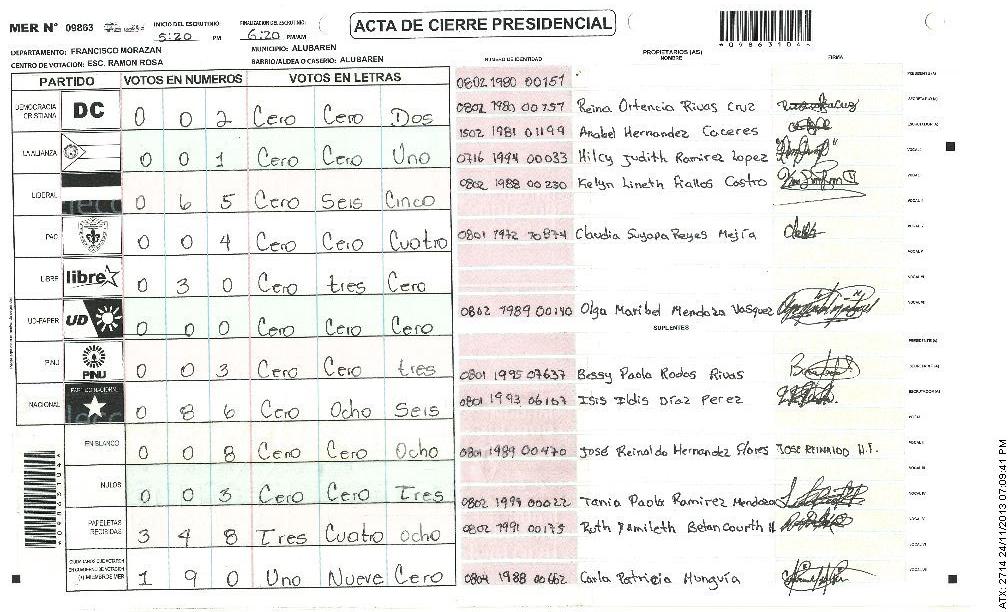 MER N° 09863
INICIO DEL ESCRUTINIO
5:20 PM
FINALIZACION DEL ESCRUTINIO:
6:20 PM/AM
ACTA DE CIERRE PRESIDENCIAL
*09863104*
DEPARTAMENTO: FRANCISCO MORAZAN
MUNICIPIO: ALUBAREN
CENTRO DE VOTACION: ESC. RAMON ROSA
BARRIO/ALDEA O CASERIO: ALUBAREN
PARTIDO VOTOS EN NUMEROS VOTOS EN LETRAS
DEMOCRACIA CRISTIANA DC 0 0 2 Cero Cero Dos
LA ALIANZA 0 0 1 Cero Cero Uno
LIBERAL 0 6 5 Cero Seis Cinco
PAC 0 0 4 Cero Cero Cuatro
LIBRE libre 0 3 0 Cero tres Cero
UD-FAPER UD 0 0 0 Cero Cero Cero
PINU PINU 0 0 3 Cero Cero tres
NACIONAL 0 8 6 Cero Ocho Seis
EN BLANCO 0 0 8 Cero Cero Ocho
NULOS 0 0 3 Cero Cero Tres
PAPELETAS RECIBIDAS 3 4 8 Tres Cuatro Ocho
(+) MIEMBROS MER 1 9 0 Uno Nueve Cero
NUMERO DE IDENTIDAD PROPIETARIOS (AS) NOMBRE FIRMA
0802 1980 00757
0802 1980 00757 Reina Ortencia Rivas Cruz
1502 1981 01199 Anabel Hernandez Caceres
0716 1994 00033 Hilcy Judith Ramirez Lopez
0802 1988 00230 Kelyn Lineth Fiallos Castro
0801 1972 70874 Claudia Suyapa Reyes Mejía
0802 1989 00140 Olga Maribel Mendoza Vasquez
SUPLENTES
0801 1995 07637 Bessy Paola Rodas Rivas
0801 1993 06167 Isis Ildis Díaz Perez
0801 1989 00470 José Reinaldo Hernandez Flores JOSE REINALDO H.F.
0802 1999 00022 Tania Paola Ramirez Mendoza
0802 1991 00175 Ruth Yamileth Betancourth H
0804 1988 00662 Carla Patricia Munguía
*09863104*
ATX: 2714 24/11/2013 07:09:41 PM